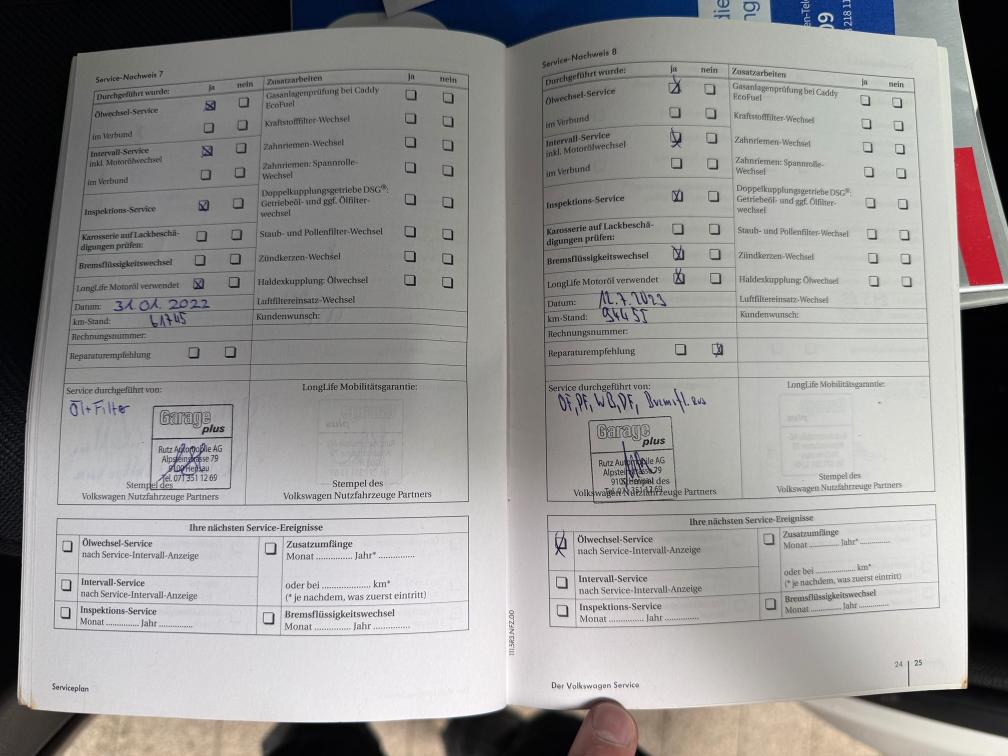 Service-Nachweis 7
Durchgeführt wurde: ja nein Zusatzarbeiten ja nein
Ölwechsel-Service
Gasanlagenprüfung bei Caddy
EcoFuel
im Verbund
Kraftstofffilter-Wechsel
Intervall-Service
inkl. Motorölwechsel
Zahnriemen-Wechsel
im Verbund
Zahnriemen: Spannrolle-
Wechsel
Inspektions-Service
Doppelkupplungsgetriebe DSG®:
Getriebeöl- und ggf. Ölfilter-
wechsel
Karosserie auf Lackbeschä-
digungen prüfen:
Staub- und Pollenfilter-Wechsel
Bremsflüssigkeitswechsel
Zündkerzen-Wechsel
LongLife Motoröl verwendet
Haldexkupplung: Ölwechsel
Datum: 31.01.2022
Luftfiltereinsatz-Wechsel
km-Stand: 61745
Kundenwunsch:
Rechnungsnummer:
Reparaturempfehlung
Service durchgeführt von:
LongLife Mobilitätsgarantie:
Öl+Filter
Garage
plus
Rutz Automobile AG
Alpsteinstrasse 79
9100 Herisau
Tel. 071 351 12 69
Stempel des
Volkswagen Nutzfahrzeuge Partners
Stempel des
Volkswagen Nutzfahrzeuge Partners
Ihre nächsten Service-Ereignisse
Ölwechsel-Service
nach Service-Intervall-Anzeige
Zusatzumfänge
Monat ............. Jahr* .............
Intervall-Service
nach Service-Intervall-Anzeige
oder bei .................. km*
(* je nachdem, was zuerst eintritt)
Inspektions-Service
Monat ............ Jahr ............
Bremsflüssigkeitswechsel
Monat ............. Jahr .............
Serviceplan
111.5R3.NFZ.00
Service-Nachweis 8
Durchgeführt wurde: ja nein Zusatzarbeiten ja nein
Ölwechsel-Service
Gasanlagenprüfung bei Caddy
EcoFuel
im Verbund
Kraftstofffilter-Wechsel
Intervall-Service
inkl. Motorölwechsel
Zahnriemen-Wechsel
im Verbund
Zahnriemen: Spannrolle-
Wechsel
Inspektions-Service
Doppelkupplungsgetriebe DSG®:
Getriebeöl- und ggf. Ölfilter-
wechsel
Karosserie auf Lackbeschä-
digungen prüfen:
Staub- und Pollenfilter-Wechsel
Bremsflüssigkeitswechsel
Zündkerzen-Wechsel
LongLife Motoröl verwendet
Haldexkupplung: Ölwechsel
Datum: 12.7.2023
Luftfiltereinsatz-Wechsel
km-Stand: 94451
Kundenwunsch:
Rechnungsnummer:
Reparaturempfehlung
Service durchgeführt von:
LongLife Mobilitätsgarantie:
ÖF, PF, WB, DF, Bremsfl.
Garage
plus
Rutz Automobile AG
Alpsteinstrasse 79
9100 Herisau
Tel. 071 351 12 69
Stempel des
Volkswagen Nutzfahrzeuge Partners
Stempel des
Volkswagen Nutzfahrzeuge Partners
Ihre nächsten Service-Ereignisse
Ölwechsel-Service
nach Service-Intervall-Anzeige
Zusatzumfänge
Monat ............. Jahr* .............
Intervall-Service
nach Service-Intervall-Anzeige
oder bei .................. km*
(* je nachdem, was zuerst eintritt)
Inspektions-Service
Monat ............ Jahr ............
Bremsflüssigkeitswechsel
Monat ............. Jahr .............
24 | 25
Der Volkswagen Service